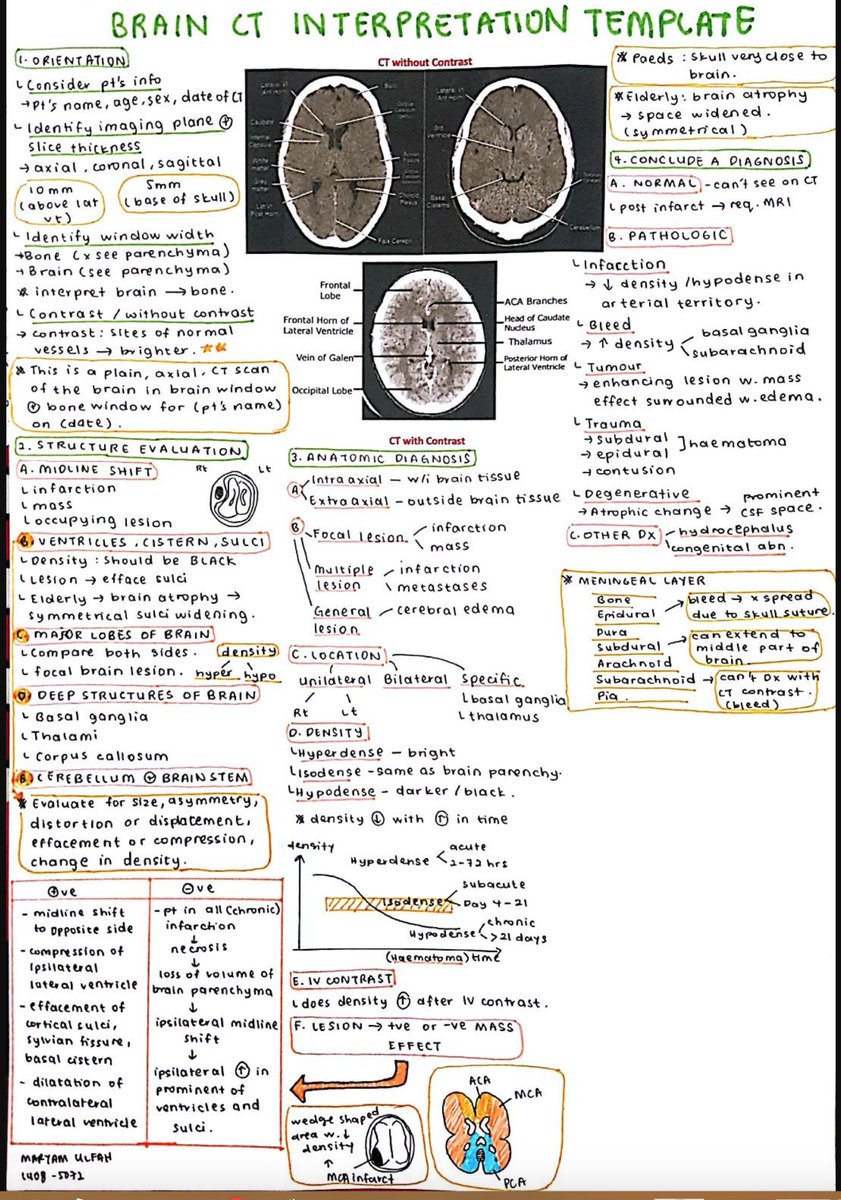 BRAIN CT INTERPRETATION TEMPLATE
1. ORIENTATION
Consider pt's info
→ Pt's name, age, sex, date of CT
Identify imaging plane ⊕
slice thickness
→ axial, coronal, sagittal
10 mm
(above lat
vt)
5mm
(base of skull)
Identify window width
→ Bone (x see parenchyma)
→ Brain (see parenchyma)
* interpret brain → bone.
Contrast / without contrast
→ contrast: sites of normal
vessels → brighter.
* This is a plain, axial, CT scan
of the brain in brain window
⊕ bone window for (pt's name)
on (date).
CT without Contrast
Lateral VT
Ant Horn
Caudate
Internal
Capsule
White
matter
Grey
matter
Lat Vt
Post Horn
Sulci
Corpus
callosum
(genu)
Sylvian
Fissure
Corpus
Callosum
Choroid
Plexus
Falx Cerebri
Lateral VT
Ant Horn
3rd
Ventricle
Basal
Cisterns
Cerebellum
Frontal
Lobe
Frontal Horn of
Lateral Ventricle
Vein of Galen
Occipital Lobe
ACA Branches
Head of Caudate
Nucleus
Thalamus
Posterior Horn of
Lateral Ventricle
CT with Contrast
* Paeds : skull very close to
brain.
* Elderly: brain atrophy
→ space widened.
(symmetrical)
2. STRUCTURE EVALUATION
A. MIDLINE SHIFT
Rt
Lt
infarction
mass
occupying lesion
B. VENTRICLES, CISTERN, SULCI
Density : should be BLACK
Lesion → efface sulci
Elderly → brain atrophy →
symmetrical sulci widening.
C. MAJOR LOBES OF BRAIN
Compare both sides.
density
focal brain lesion.
hyper
hypo
D. DEEP STRUCTURES OF BRAIN
Basal ganglia
Thalami
Corpus callosum
E. CEREBELLUM ⊕ BRAINSTEM
* Evaluate for size, asymmetry,
distortion or displacement,
effacement or compression,
change in density.
⊕ve
- midline shift
to opposite side
- compression of
ipsilateral
lateral ventricle
- effacement of
cortical sulci,
sylvian fissure,
basal cistern
- dilatation of
contralateral
lateral ventricle
⊖ve
- pt in all (chronic)
infarction
↓
necrosis
↓
loss of volume of
brain parenchyma
↓
ipsilateral midline
shift
↓
ipsilateral ↑ in
prominent of
ventricles and
sulci.
MARYAM ULFAH
1408-5072
3. ANATOMIC DIAGNOSIS
A
Intraaxial - w/i brain tissue
Extraaxial - outside brain tissue
B
Focal lesion
infarction
mass
Multiple
lesion
infarction
metastases
General
lesion
cerebral edema
C. LOCATION
Unilateral
Bilateral
Specific
Rt
Lt
basal ganglia
thalamus
D. DENSITY
Hyperdense - bright
Isodense - same as brain parenchy.
Hypodense - darker / black.
* density ↓ with ↑ in time
density
Hyperdense
acute
2-72 hrs
Isodense
subacute
Day 4-21
Hypodense
chronic
>21 days
(Haematoma) time
E. IV CONTRAST
does density ↑ after IV contrast.
F. LESION → +ve or -ve MASS
EFFECT
wedge shaped
area w. ↓
density
↑
MCA infarct
ACA
MCA
PCA
4. CONCLUDE A DIAGNOSIS
A. NORMAL - can't see on CT
post infarct → req. MRI
B. PATHOLOGIC
Infarction
→ ↓ density / hypodense in
arterial territory.
Bleed
→ ↑ density
basal ganglia
subarachnoid
Tumour
→ enhancing lesion w. mass
effect surrounded w. edema.
Trauma
→ subdural
→ epidural
] haematoma
→ contusion
Degenerative
→ Atrophic change → prominent
CSF space.
C. OTHER DX
hydrocephalus
congenital abn.
* MENINGEAL LAYER
Bone
Epidural
bleed → x spread
due to skull suture.
Dura
Subdural
can extend to
middle part of
brain.
Arachnoid
Subarachnoid
can't Dx with
CT contrast.
(bleed)
Pia